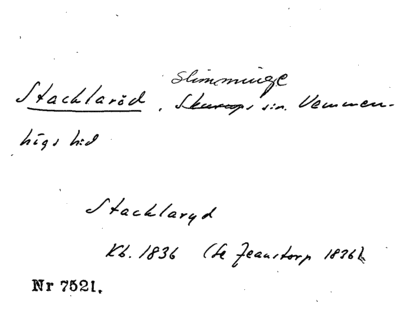 Slimminge
Stacklaröd, Skurups sn. Vemmen-
högs hd
Stacklaryd
Kb. 1836 (se Jeanstorp 1836)
Nr 7521.